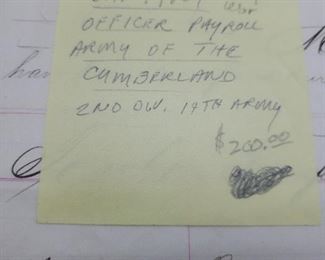 OFFICER PAYROLL
ARMY OF THE
CUMBERLAND
2ND DIV. 14TH ARMY
$200.00